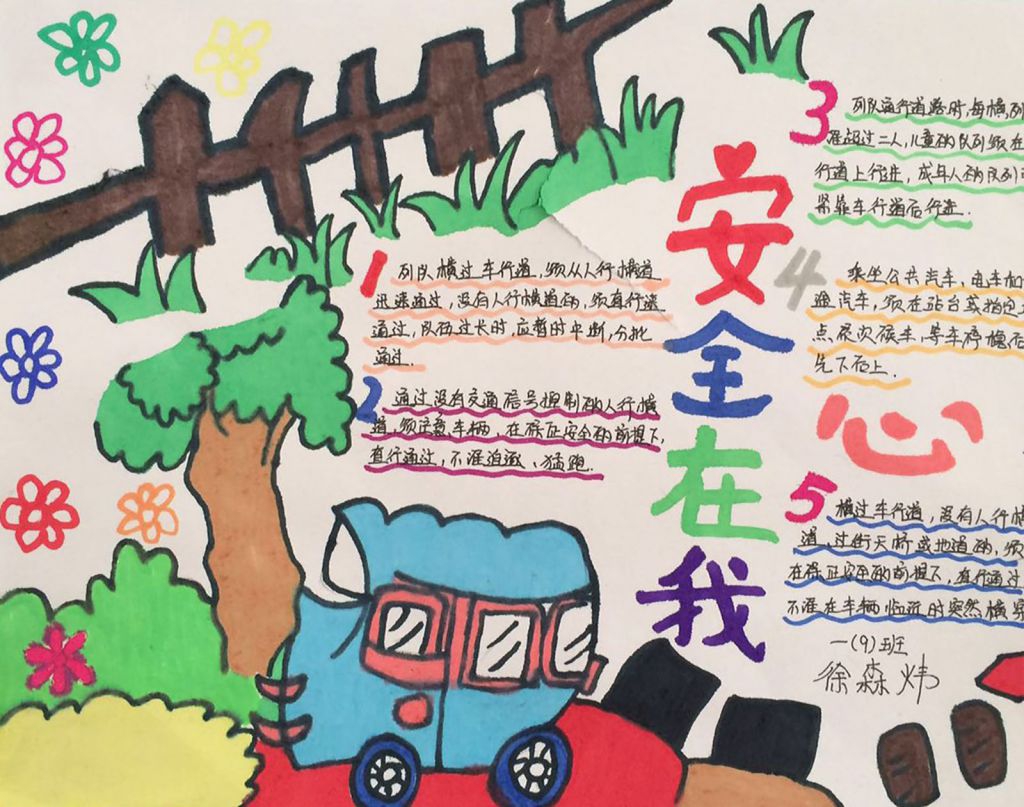 安全在我心
1 列队横过车行道，须从人行横道
迅速通过，没有人行横道的，须直行
通过，队伍过长时，应暂时中断，分批
通过.
2 通过没有交通信号控制的人行横
道，须注意车辆，在保证安全的前提下，
直行通过，不准追逐、猛跑.
3 列队通行道路时，每横列
准超过二人，儿童的队列须在
行道上行进，成年人的队列
紧靠车行道右行进.
4 乘坐公共汽车，电车和
通汽车，须在站台或指定
点依次候车，等车停稳后
先下后上.
5 横过车行道，没有人行横
道，过街天桥或地道的，须
在保证安全的前提下，直行通过
不准在车辆临近时突然横穿
一(9)班
徐森炜